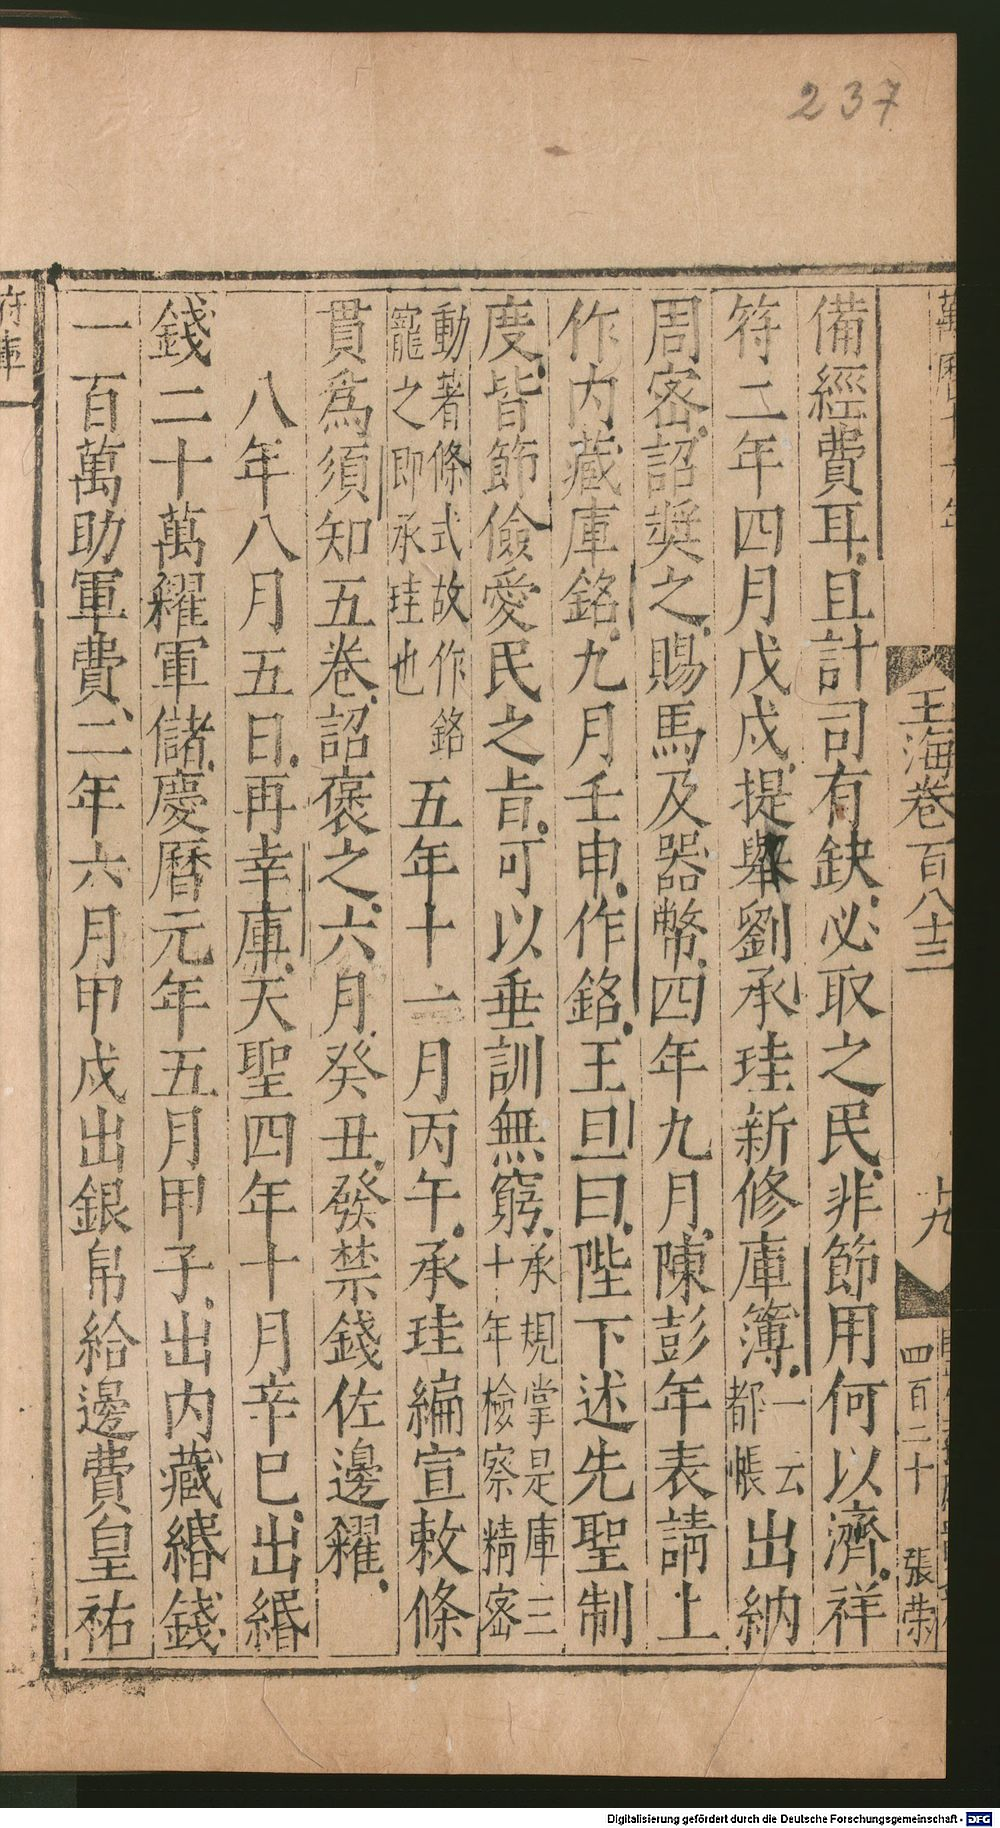 237
玉海卷百八十三
十九
四百二十 張荣
備經費耳且計司有缺必取之民非節用何以濟祥
符二年四月戊戌提舉劉承珪新修庫簿一云都帳出納
周密詔奬之賜馬及器幣四年九月陳彭年表請上
作内藏庫銘九月壬申作銘王旦曰陛下述先聖制
度皆節儉愛民之旨可以垂訓無窮承規掌是庫三十年檢察精密
動著條式故作銘寵之即承珪也 五年十一月丙午承珪編宣敕條
貫爲須知五卷詔褒之六月癸丑發禁錢佐邊糴
八年八月五日再幸庫天聖四年十月辛巳出緡
錢二十萬糴軍儲慶曆元年五月甲子出内藏緡錢
一百萬助軍費二年六月甲戌出銀帛給邊費皇祐
府庫
Digitalisierung gefördert durch die Deutsche Forschungsgemeinschaft - DFG